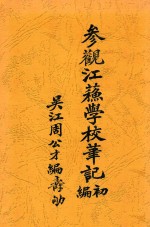 參觀江蘇學校筆記初編
吳江周公才編